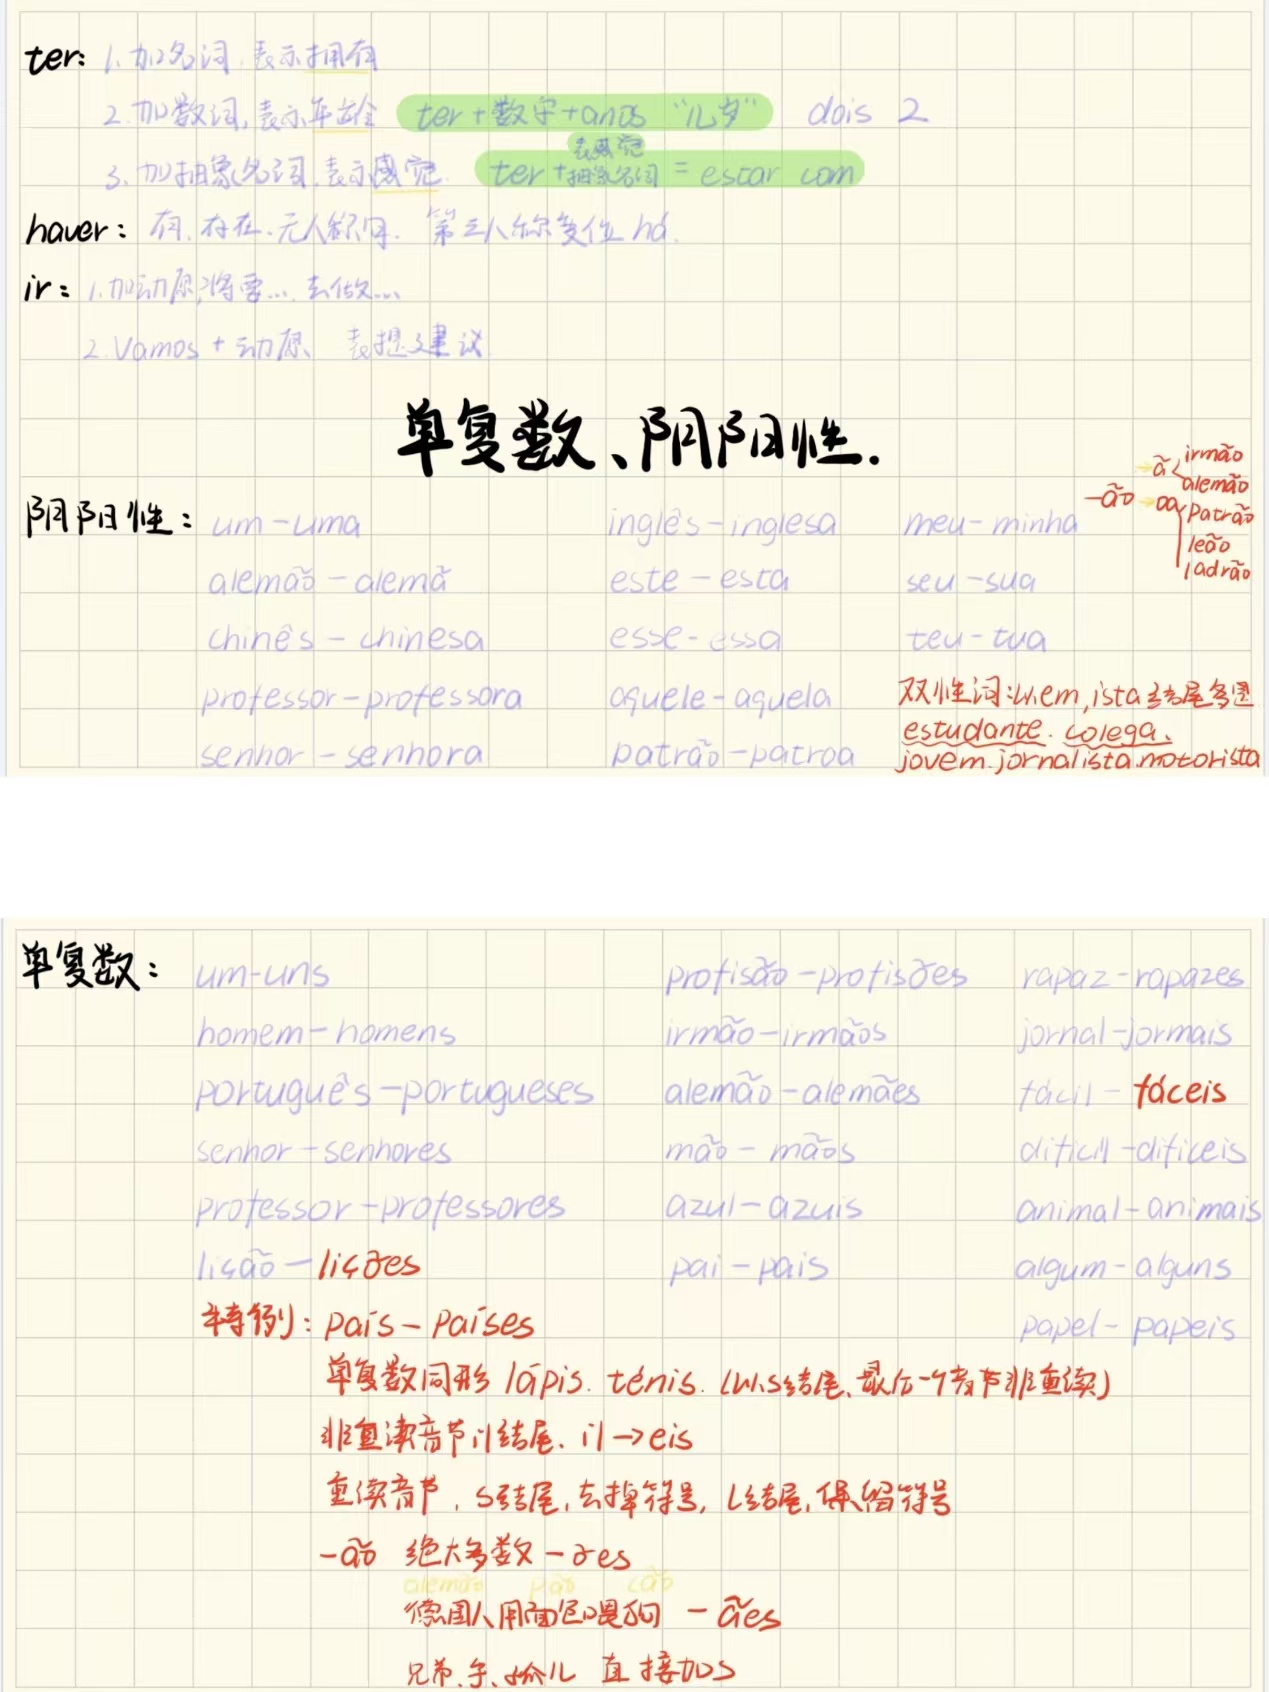 ter: 1.加名词,表示拥有
2.加数词,表示年龄 ter+数字+anos "几岁" dois 2
表感觉
3.加抽象名词,表示感觉. ter+抽象名词 = estar com
haver: 有,存在.无人称句. 第三人称变位 há.
ir: 1.加动原,将要... 去做...
2.Vamos + 动原、表提建议.
单复数、阴阳性.
-ão → ã irmão
alemão
→ oa patrão
leão
ladrão
阴阳性: um-uma inglês-inglesa meu-minha
alemão-alemã este-esta seu-sua
chinês-chinesa esse-essa teu-tua
professor-professora aquele-aquela 双性词:以em,ista结尾多图
senhor-senhora patrão-patroa estudante. colega.
jovem.jornalista.motorista
单复数: um-uns profisão-profisões rapaz-rapazes
homem-homens irmão-irmãos jornal-jormais
português-portugueses alemão-alemães fácil-fáceis
senhor-senhores mão-mãos difícil-difíceis
professor-professores azul-azuis animal-animais
lição-lições pai-pais algum-alguns
特例: país-países papel-papeis
单复数同形 lápis. ténis. (以s结尾、最后一个音节非重读)
非重读音节il结尾. il→eis
重读音节, s结尾,去掉符号, L结尾,保留符号
-ão 绝大多数-ões
alemão pão cão
德国人用面包喂狗 -ães
兄弟.手. 直接加s